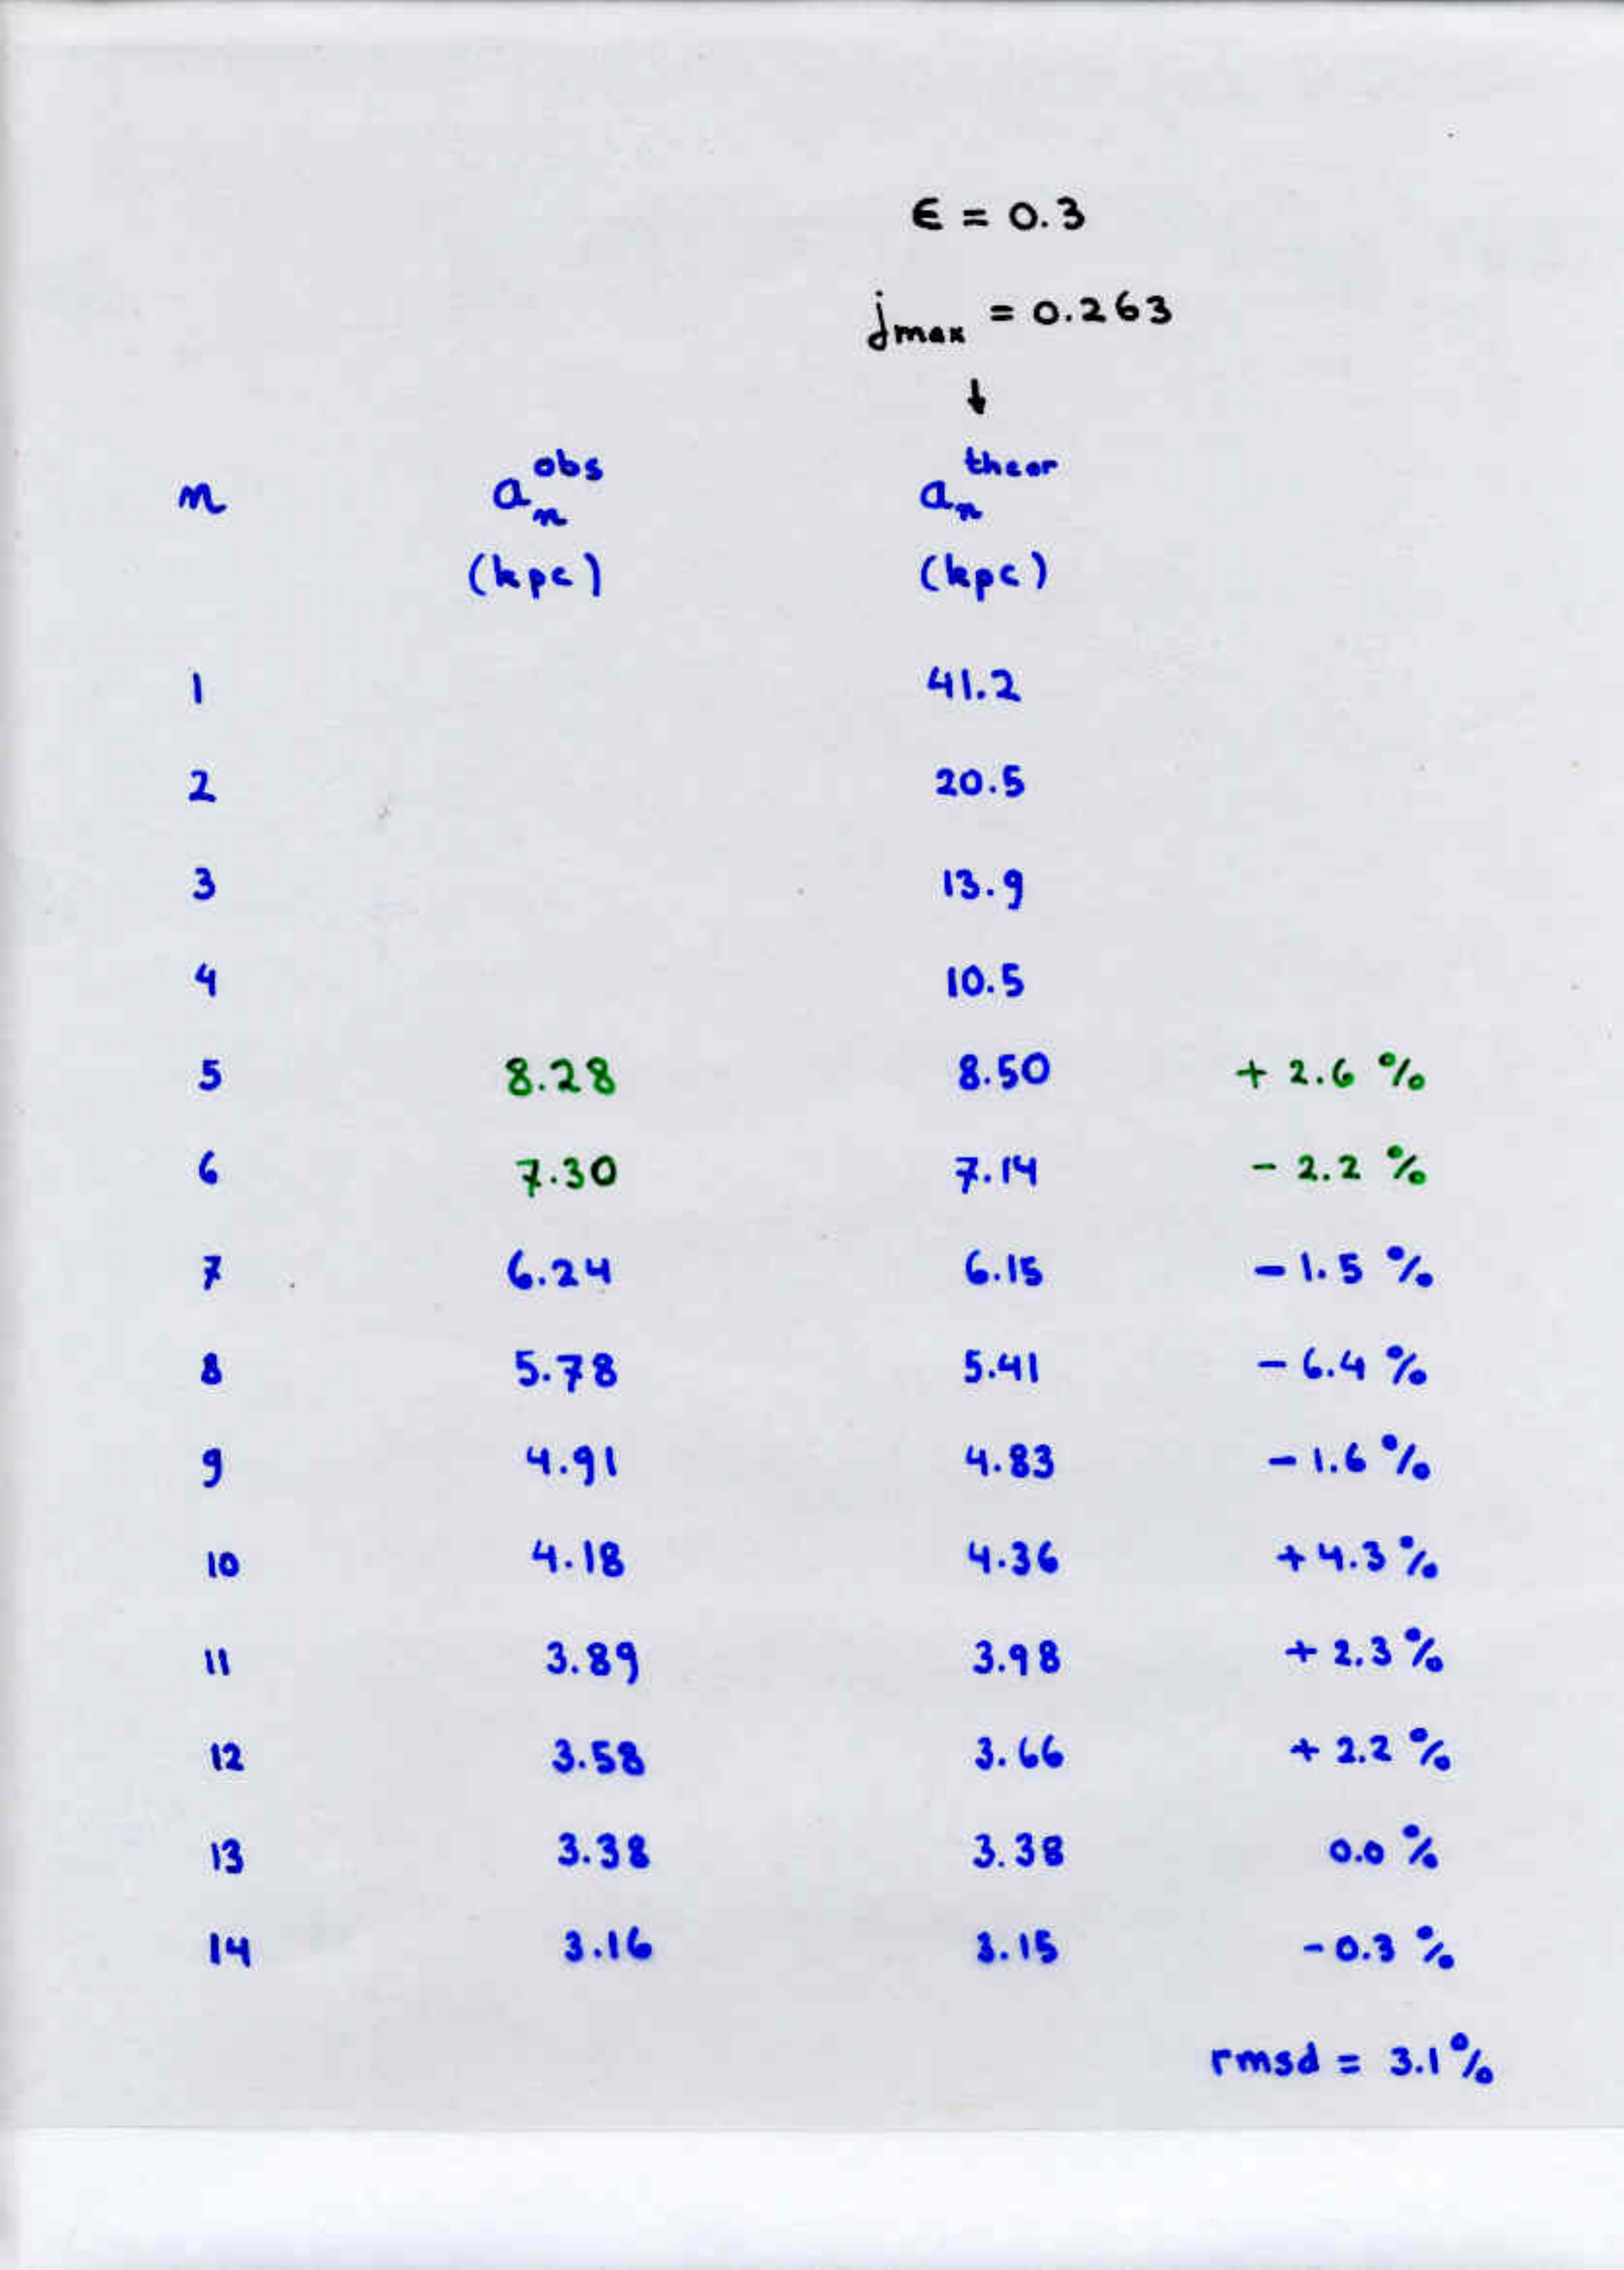 ϵ = 0.3
jmax = 0.263
↓
n aₙobs aₙtheor
(kpc) (kpc)
1 41.2
2 20.5
3 13.9
4 10.5
5 8.28 8.50 + 2.6 %
6 7.30 7.14 - 2.2 %
7 6.24 6.15 - 1.5 %
8 5.78 5.41 - 6.4 %
9 4.91 4.83 - 1.6 %
10 4.18 4.36 + 4.3 %
11 3.89 3.98 + 2.3 %
12 3.58 3.66 + 2.2 %
13 3.38 3.38 0.0 %
14 3.16 3.15 - 0.3 %
rmsd = 3.1 %